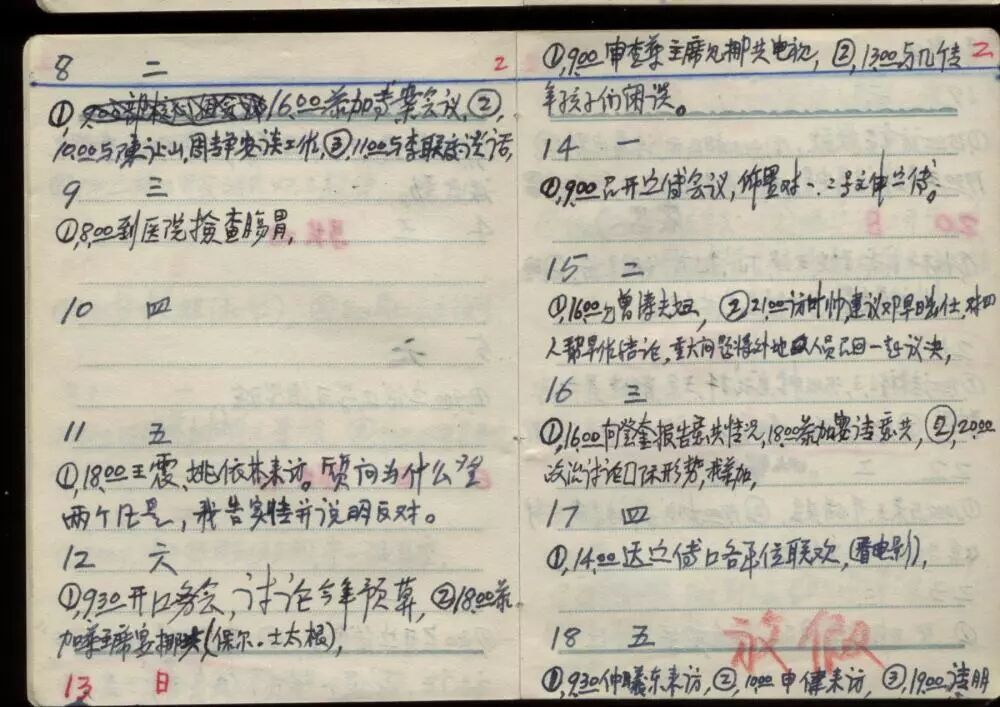 8 二 2
①, 16,00参加专案会议, ②,
10,00与陈让山,周静安谈工作, ③, 11,00与李联庆谈话,
9 三
①, 8,00到医院检查肠胃,
10 四
11 五
①, 18,00王震、姚依林来访。质问为什么
两个凡是, 我告实情并说明反对。
12 六
①, 9,30开口务会, 讨论今年预算, ②18,00参
加华主席宴挪共(保尔。士太根),
13 日
①, 9,00审查华主席见挪共电视, ②, 13,00与几个
孩子们
14 一
①, 9,00召开会议, 佈置对一、二号文件
15 二
①, 16,00 夫妇, ②21,00访叶帅,建议邓早日出任, 对四
人帮早作结论, 重大问题将外地人员召回一起议决,
16 三
①, 16,00向登奎报告意共情况, 18,00参加宴请意共, ②, 20,00
政治讨论 形势, 我参加,
17 四
①, 14,00 口各单位联欢, (看电影),
18 五 放假
①, 9,30仲曦东来访, ②, 10,00申健来访, ③, 19,00请朋